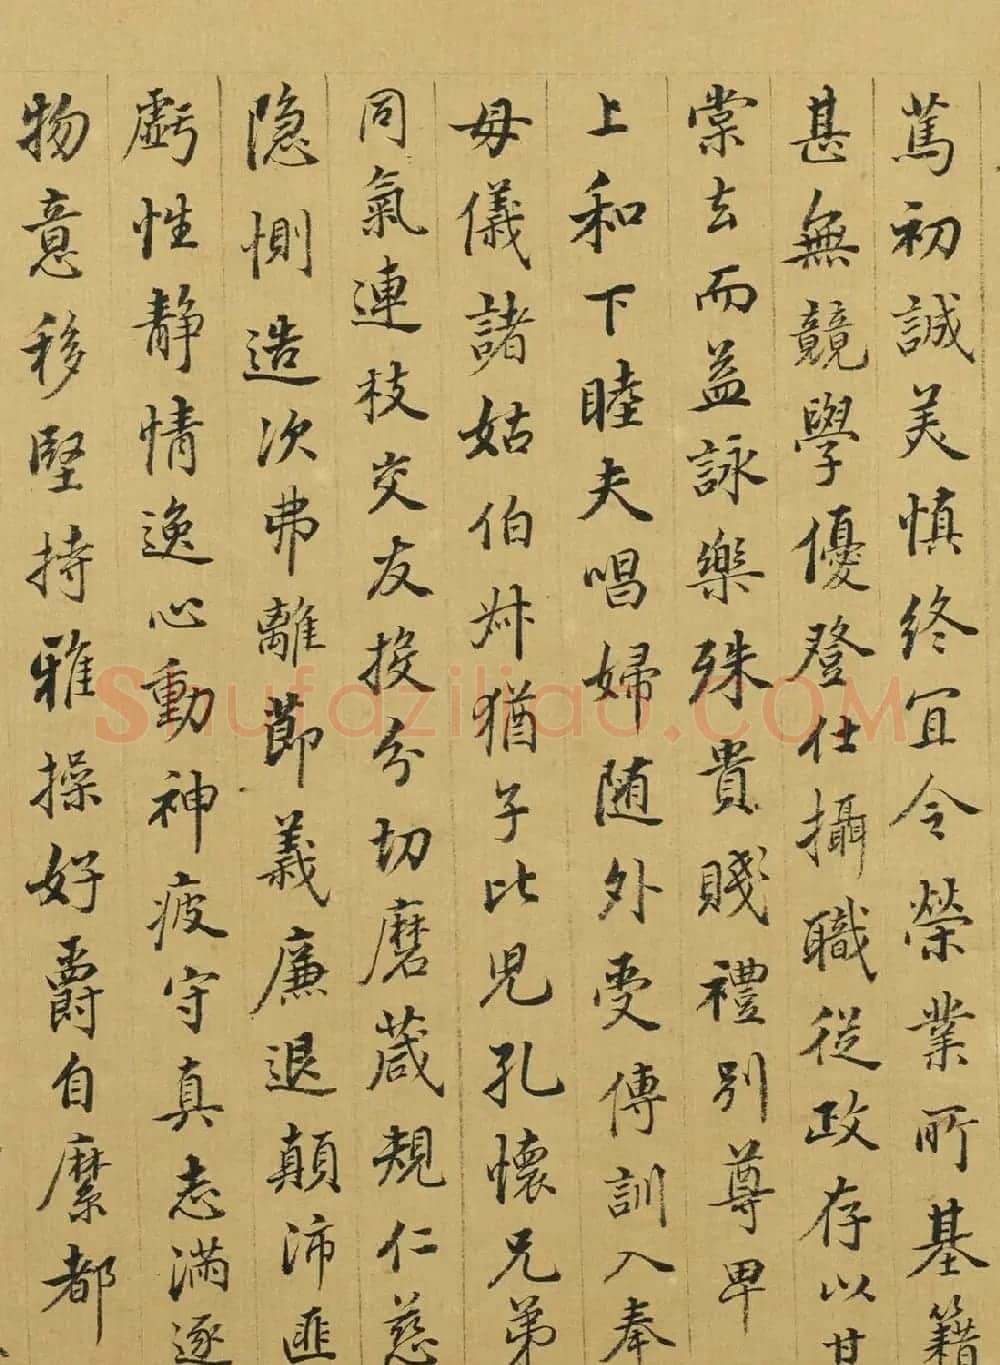 篤初誠美慎終宜令榮業所基籍
甚無競學優登仕攝職從政存以甘
棠去而益詠樂殊貴賤禮別尊卑
上和下睦夫唱婦随外受傅訓入奉
母儀諸姑伯叔猶子比兒孔懷兄弟
同氣連枝交友投分切磨葴規仁慈
隐惻造次弗離節義廉退顛沛匪
虧性静情逸心動神疲守真志滿逐
物意移堅持雅操好爵自縻都
Shufaziliao.COM